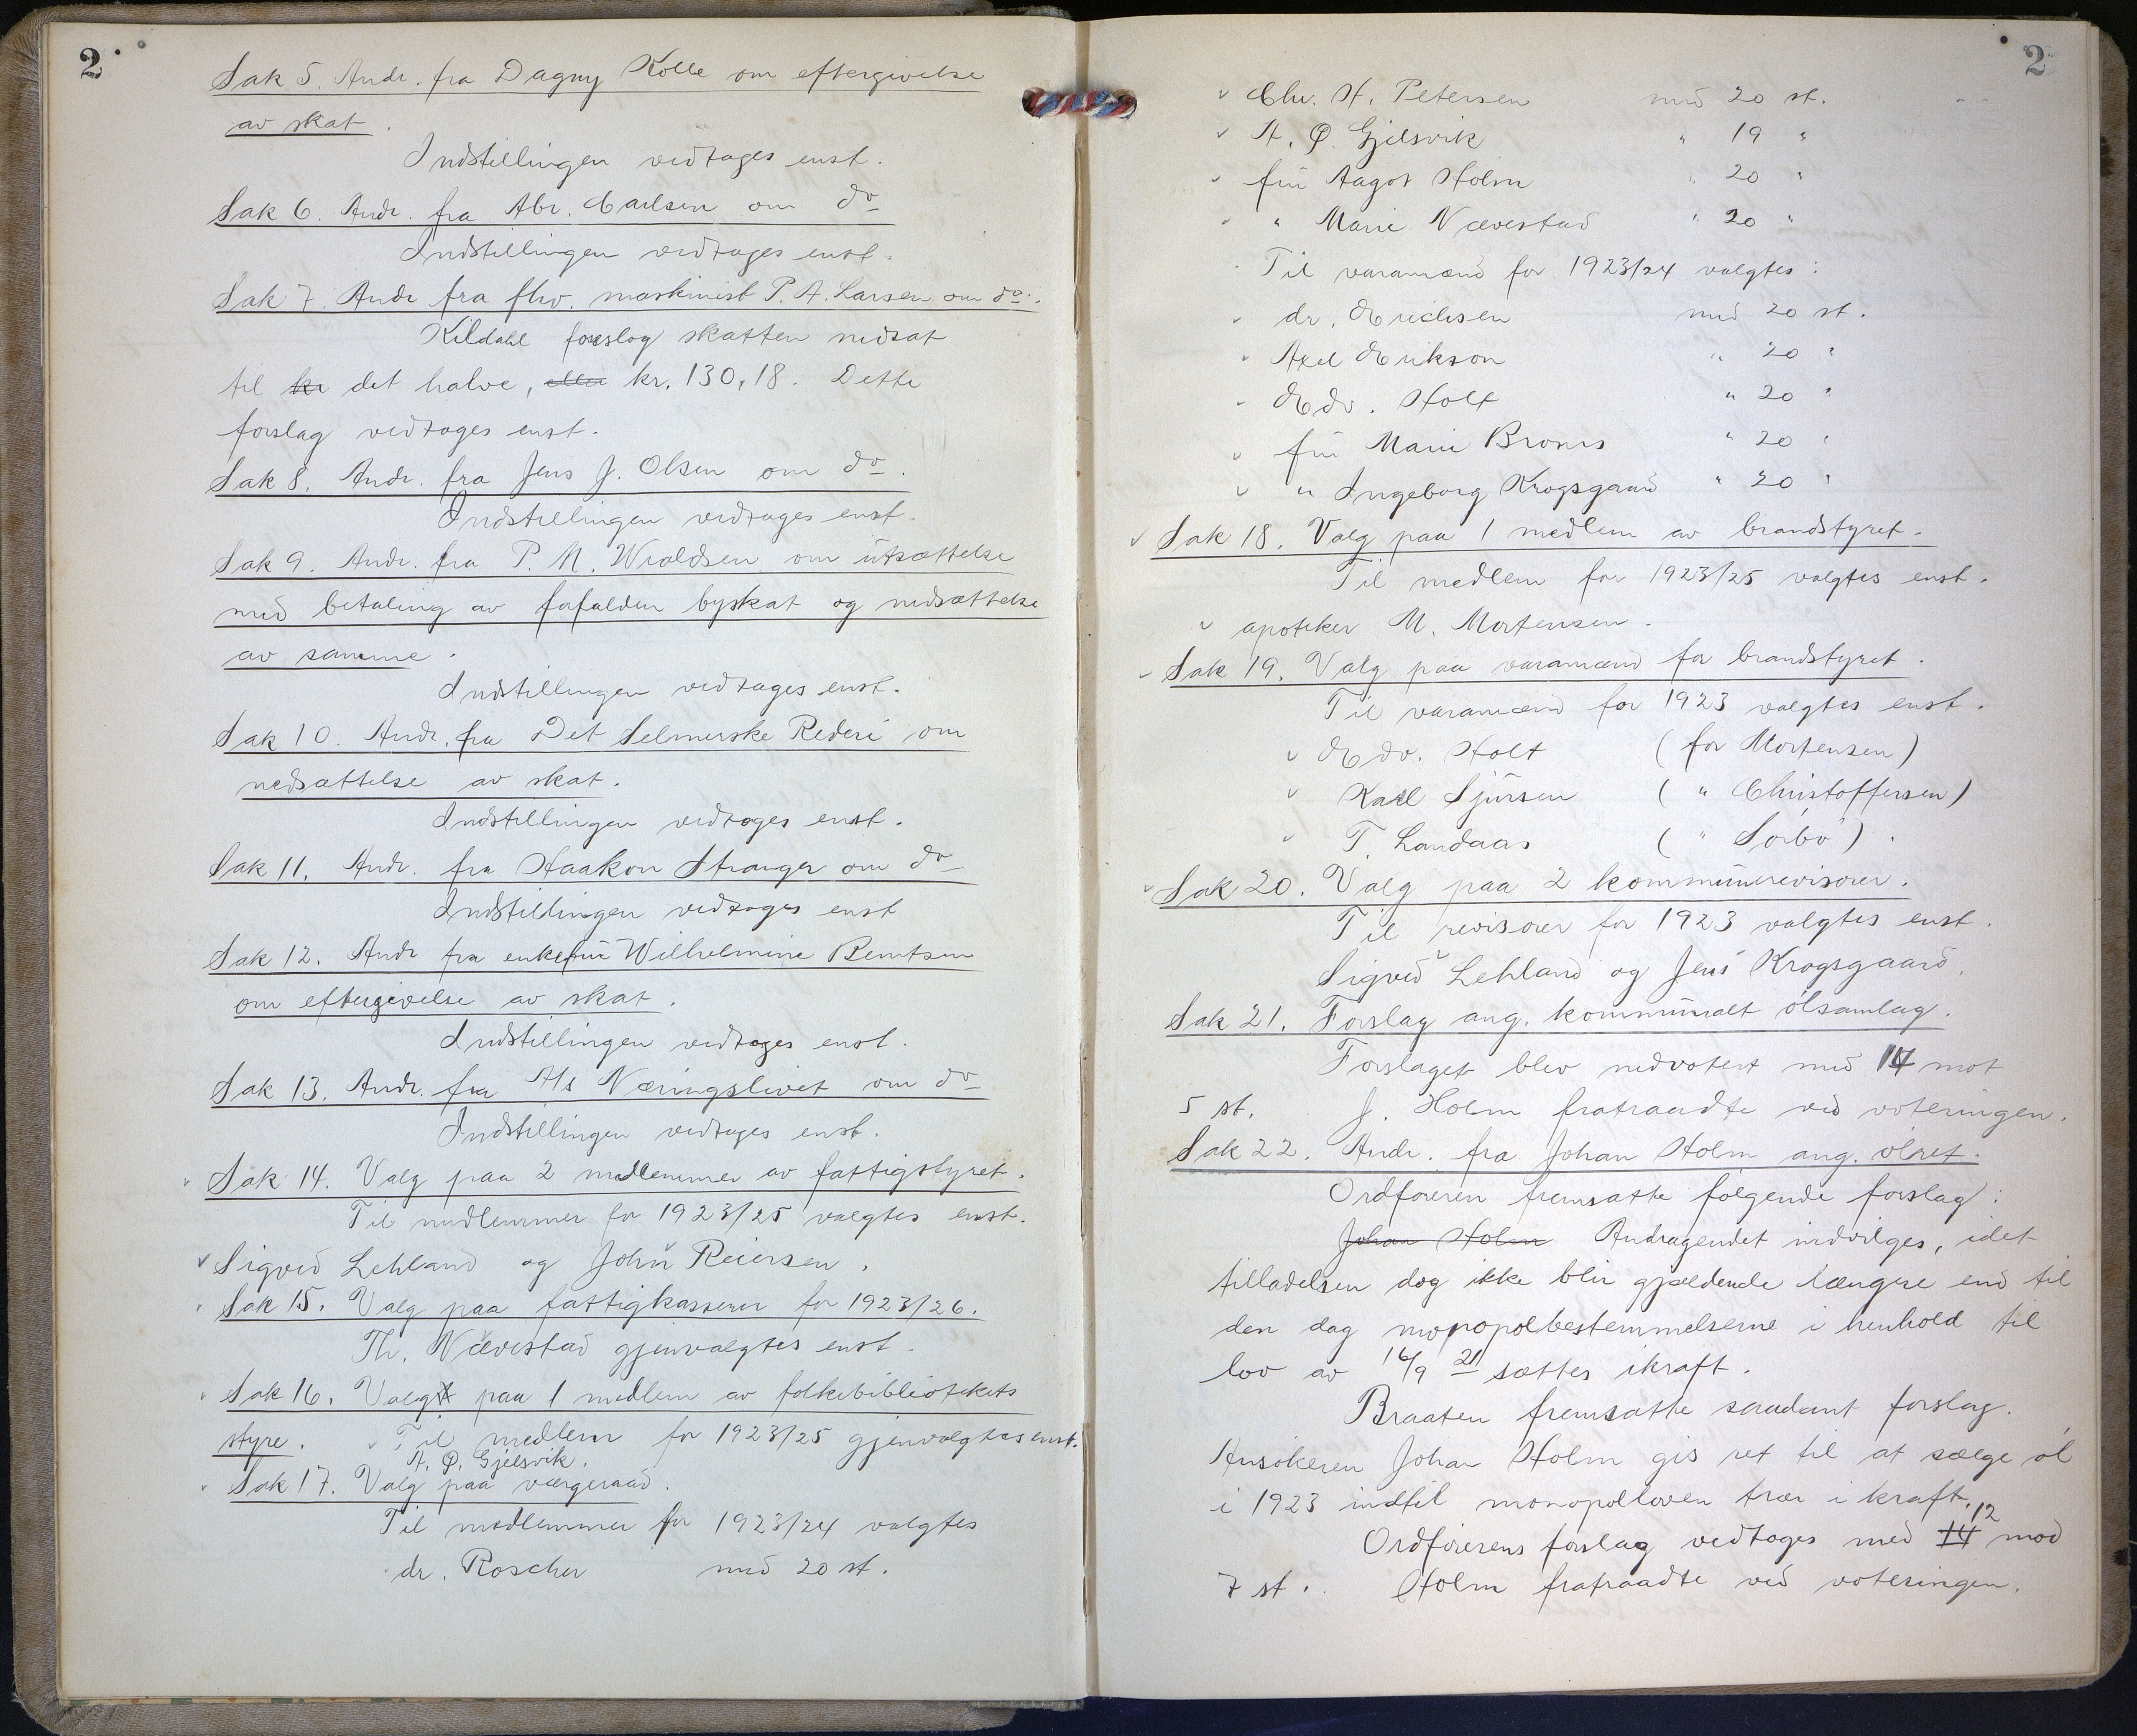 2
Sak 5. Andr. fra Dagny Kolle om eftergivelse
av skat.
Indstillingen vedtages enst.
Sak 6. Andr. fra Abr. Carlsen om do
Indstillingen vedtages enst.
Sak 7. Andr fra fhv. maskinist P. A. Larsen om do.
Kildahl foreslog skatten nedsat
til kr det halve, eller kr. 130,18. Dette
forslag vedtages enst.
Sak 8. Andr. fra Jens J. Olsen om do.
Indstillingen vedtages enst.
Sak 9. Andr. fra P. M. Wroldsen om utsættelse
med betaling av forfalden byskat og nedsættelse
av samme.
Indstillingen vedtages enst.
Sak 10. Andr. fra Det Selmerske Rederi om
nedsættelse av skat.
Indstillingen vedtages enst.
Sak 11. Andr. fra Haakon Stranger om do
Indstillingen vedtages enst
Sak 12. Andr fra enkefru Wilhelmine Berntsen
om eftergivelse av skat.
Indstillingen vedtages enst.
Sak 13. Andr. fra A/s Næringslivet om do
Indstillingen vedtages enst.
Sak 14. Valg paa 2 medlemmer av fattigstyret.
Til medlemmer for 1923/25 valgtes enst.
Sigvid Lehland og John Reiersen.
Sak 15. Valg paa fattigkasserer for 1923/26.
Th. Nævestad gjenvalgtes enst.
Sak 16. Valgt paa 1 medlem av folkebibliotekets
styre. Til medlem for 1923/25 gjenvalgtes enst.
A. Ø. Gjelsvik.
Sak 17. Valg paa værgeraad.
Til medlemmer for 1923/24 valgtes
dr. Roscher med 20 st.
2
Chr. H. Petersen med 20 st.
A. Ø. Gjelsvik " 19 "
fru Aagot Holm " 20 "
" Marie Nævestad " 20 "
Til varamænd for 1923/24 valgtes:
dr. Erichsen med 20 st.
Axel Erikson " 20 "
Edv. Holt " 20 "
fru Marie Broms " 20 "
" Ingeborg Krogsgaard " 20 "
Sak 18. Valg paa 1 medlem av brandstyret.
Til medlem for 1923/25 valgtes enst.
apoteker M. Mortensen.
Sak 19. Valg paa varamænd for brandstyret.
Til varamænd for 1923 valgtes enst.
Edv. Holt (for Mortensen)
Karl Sjursen ( " Christoffersen)
T. Landaas ( " Sørbø).
Sak 20. Valg paa 2 kommunerevisorer.
Til revisorer for 1923 valgtes enst.
Sigvid Lehland og Jens Krogsgaard.
Sak 21. Forslag ang. kommunalt ølsamlag.
Forslaget blev nedvotert med 14 mot
5 st. J. Holm fratraadte ved voteringen.
Sak 22. Andr. fra Johan Holm ang. ølret.
Ordføreren fremsatte følgende forslag:
Johan Holm Andragendet indvilges, idet
tilladelsen dog ikke blir gjældende længere end til
den dag monopolbestemmelserne i henhold til
lov av 16/9 21 sættes ikraft.
Braaten fremsatte saadant forslag.
Ansøkeren Johan Holm gis ret til at sælge øl
i 1923 indtil monopolloven trær i kraft.
Ordførerens forslag vedtoges med 14 12 mod
7 st. Holm fratraadte ved voteringen.